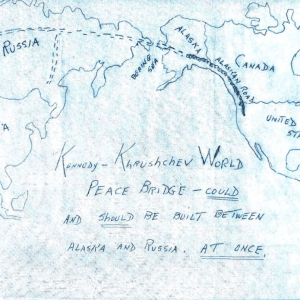 RUSSIA
BERING SEA
ALASKA
ALASKAN ROAD
CANADA
UNITED
ST
A
KENNEDY - KHRUSHCHEV WORLD
PEACE BRIDGE - COULD
AND SHOULD BE BUILT BETWEEN
ALASKA AND RUSSIA. AT ONCE.